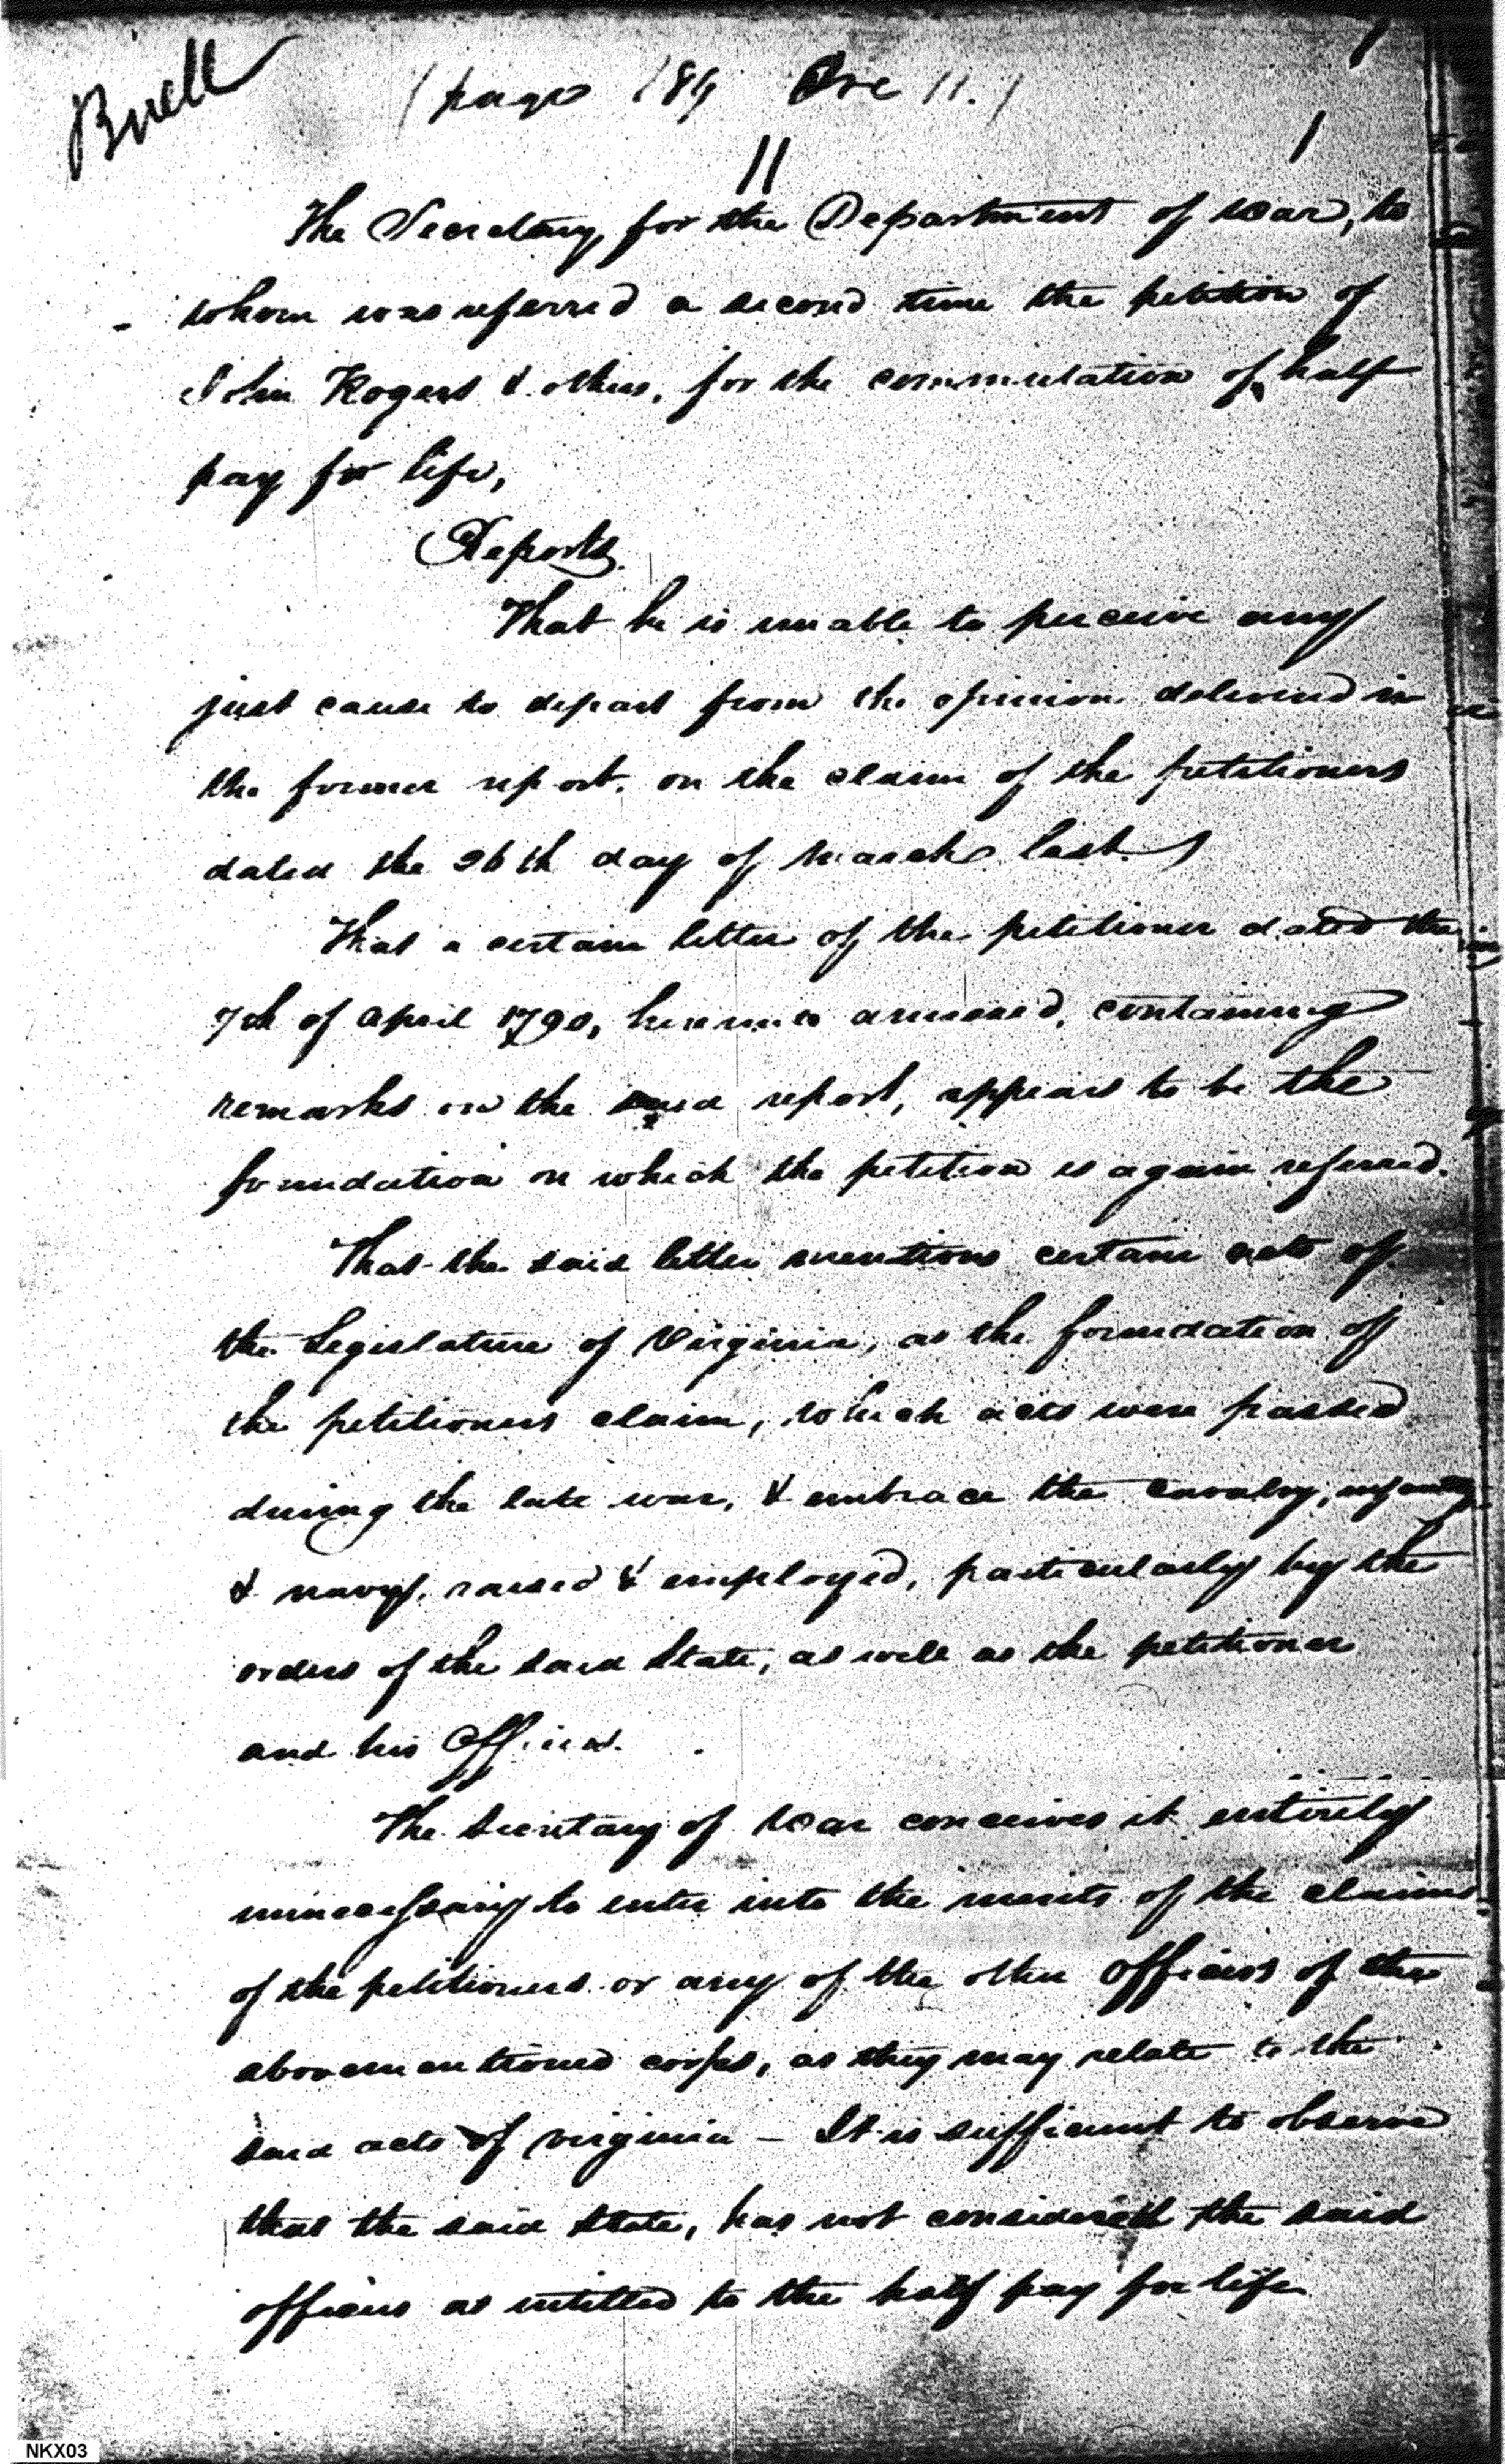 Buell
(page 189 Ove 11.)
11
The Secretary, for the Department of War, to
whom was referred a second time the petition of
John Rogers & others, for the commutation of half
pay for life,
Reports.
That he is unable to perceive any
just cause to depart from the opinion delivered in
the former report. on the claim of the petitioners
dated the 26th day of March last.
That a certain letter of the petitioner dated the
7th of April 1790, hereunto annexed, containing
remarks on the said report, appears to be the
foundation on which the petition is again referred.
That the said letter mentions certain acts of
the Legislature of Virginia, as the foundation of
the petitioners claim, which acts were passed
during the late war, & embrace the cavalry, infantry
& navy, raised & employed, particularly by the
orders of the said State, as well as the petitioner
and his Officers.
The Secretary of War conceives it entirely
unnecessary to enter into the merits of the claims
of the petitioners or any of the other Officers of the
abovementioned corps, as they may relate to the
said acts of Virginia — It is sufficient to observe
that the said State, has not considered the said
officers as intitled to the half pay for life
NKX03